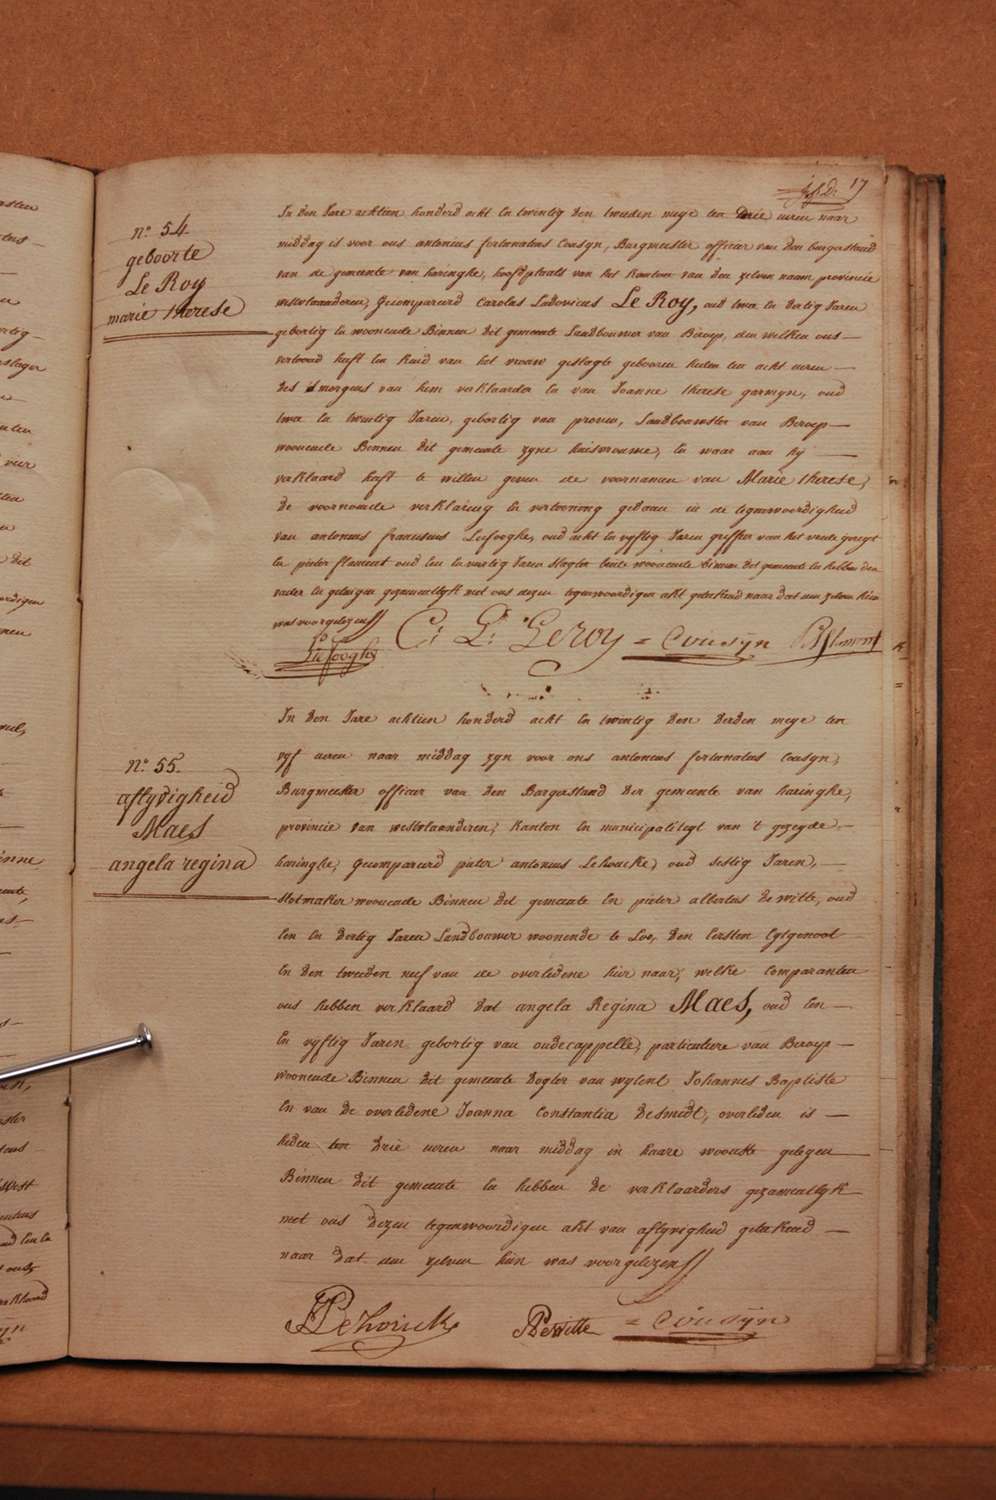 17
n.º 54
geboorte
Le Roy
marie therese
In den Jare achtien honderd acht en twintig den tweeden meye ten drie uren naar
middag is voor ons antonius fortunatus Cousyn, Burgmeester officier van den burgerstand
van de gemeente van haringhe, hoofdplaats van het kanton van den zelven naam provincie
westvlaanderen, Gecompareerd Carolus Ludovicus Le Roy, oud twee en dertig Jaren
gebortig en woonende Binnen dit gemeente Landbouwer van Beroep, den welken ons
vertoond heeft een kind van het vrouw geslagte geboren heden ten acht uren
des smorgens van hem verklaarder en van Joanne therese gerwyn, oud
twee en twintig Jaren, gebortig van proven, Landbouwster van Beroep
woonende Binnen dit gemeente zyne huisvrouwe, en waar aan hy
verklaard heeft te willen geven de voornamen van Marie therese,
de voornoemde verklaring en vertooning gedaan in de tegenwoordigheid
van antonius franciscus Lefooghe, oud acht en vyftig Jaren griffier van het vrede geregt
en pieter flament oud een en veertig Jaren woonende binnen dit gemeente en hebben den
vader en getuigen gezamentlyk met ons dezen tegenwoordigen akt geteekend naar dat aen zelven hun
was voorgelezen
Lefooghe C: L: Leroy = Cousyn
n.º 55.
aflyvigheid
Maes
angela regina
In den Jare achtien honderd acht en twintig den derden meye ten
vyf uren naar middag zyn voor ons antonius fortunatus Cousyn,
Burgmeester officier van den Burgerstand der gemeente van haringhe,
provincie van westvlaanderen, kanton en municipaliteyt van 't gezegde
haringhe, Gecompareerd pieter antonius Lehoucke, oud sestig Jaren,
slotmaker woonende Binnen dit gemeente en pieter albertus de witte, oud
een en dertig Jaren Landbouwer woonende te Loo, den eersten Eygenoot
en den tweeden neef van de overledene hier naar, welke comparanten
ons hebben verklaard dat angela Regina Maes, oud een
en vyftig Jaren gebortig van oudecappelle, particuliere van Beroep
woonende Binnen dit gemeente Dogter van wylent Johannes Baptiste
en van de overledene Joanna Constantia desmidt, overleden is
heden ten drie uren naar middag in haare woonste gelegen
Binnen dit gemeente en hebben de verklaarders gezamentlyk
met ons dezen tegenwoordigen akt van aflyvigheid geteekend
naar dat aen zelven hun was voorgelezen
PDewitte = Cousyn